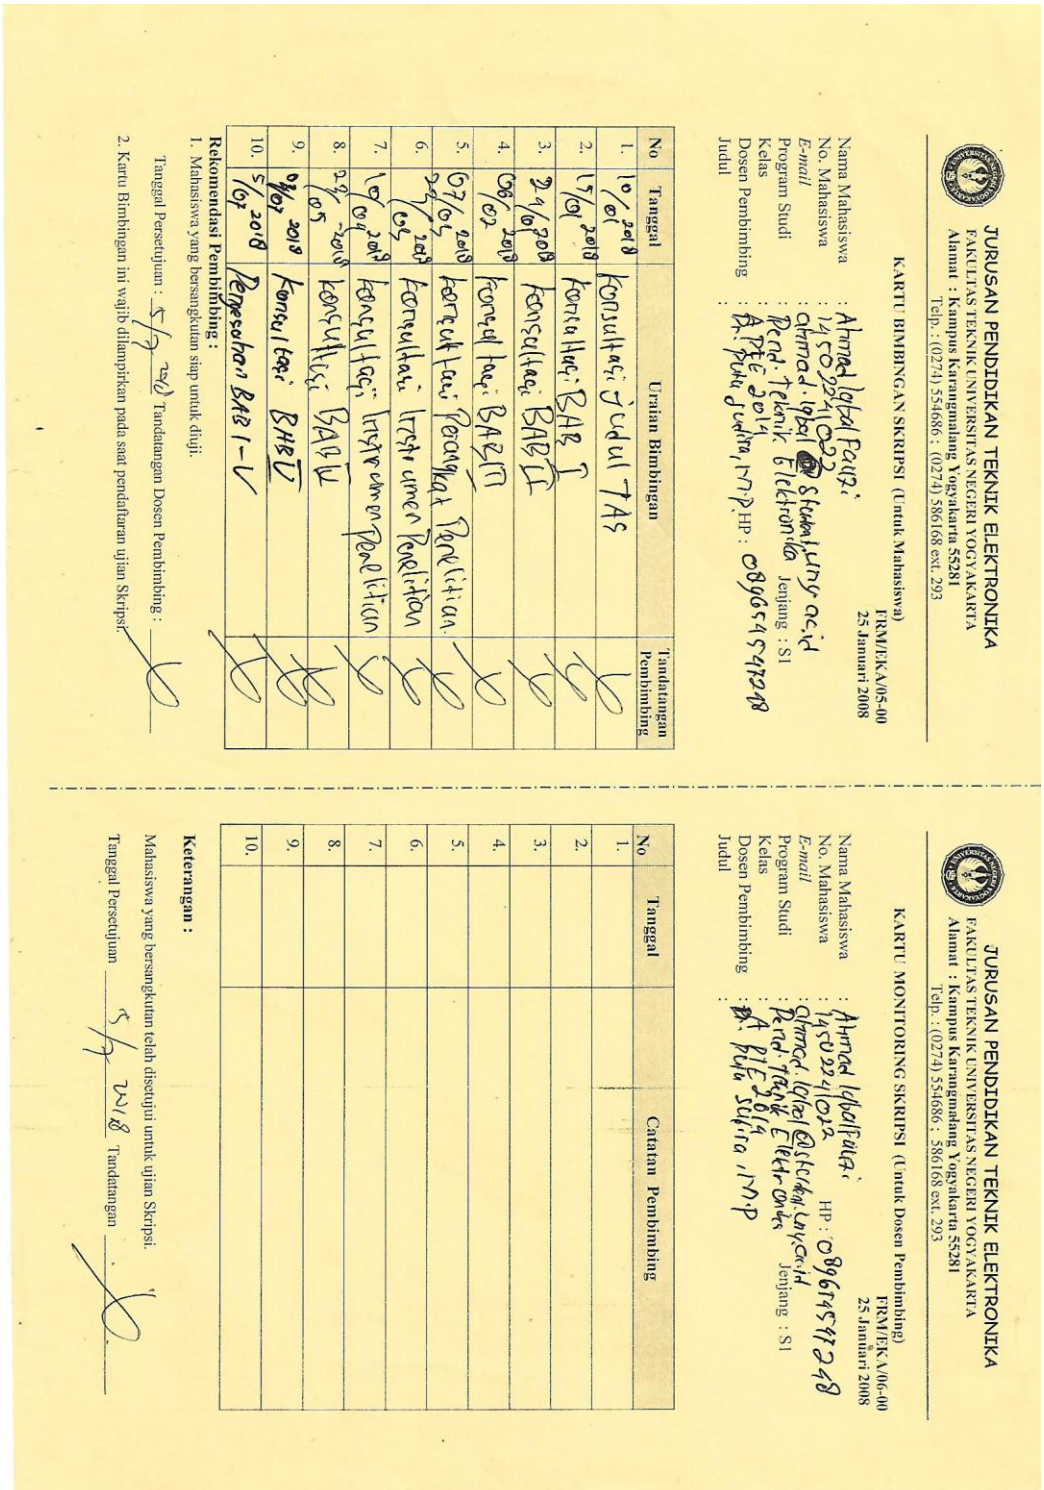 JURUSAN PENDIDIKAN TEKNIK ELEKTRONIKA
FAKULTAS TEKNIK UNIVERSITAS NEGERI YOGYAKARTA
Alamat : Kampus Karangmalang Yogyakarta 55281
Telp. : (0274) 554686 ; (0274) 586168 ext. 293
FRM/EKA/05-00
25 Januari 2008
KARTU BIMBINGAN SKRIPSI (Untuk Mahasiswa)
Nama Mahasiswa : Ahmad Iqbal Fauzi
No. Mahasiswa : 14502241022
E-mail : ahmad.iqbal@student.uny.ac.id
Program Studi : Pend. Teknik Elektronika Jenjang : S1
Kelas : A PTE 2014
Dosen Pembimbing : Dr. Putu Sudira, M.P. HP :
Judul :
No Tanggal Uraian Bimbingan Tandatangan Pembimbing
1. 10/01 2018 Konsultasi judul TAS
2. 15/01 2018 Konsultasi BAB I
3. 24/01 2018 Konsultasi BAB II
4. 06/02 2018 Konsultasi BAB III
5. 07/03 2018 Konsultasi Perangkat Penelitian.
6. 2018 Konsultasi Instrumen Penelitian
7. 10/04 2018 Konsultasi Instrumen penelitian
8. /05 -2018 Konsultasi BAB IV
9. /07 2018 Konsultasi BAB V
10. 5/07 2018 Pengesahan BAB I-V
Rekomendasi Pembimbing :
1. Mahasiswa yang bersangkutan siap untuk diuji.
Tanggal Persetujuan : 5/7 2018 Tandatangan Dosen Pembimbing :
2. Kartu Bimbingan ini wajib dilampirkan pada saat pendaftaran ujian Skripsi.
JURUSAN PENDIDIKAN TEKNIK ELEKTRONIKA
FAKULTAS TEKNIK UNIVERSITAS NEGERI YOGYAKARTA
Alamat : Kampus Karangmalang Yogyakarta 55281
Telp. : (0274) 554686 ; 586168 ext. 293
FRM/EKA/06-00
25 Januari 2008
KARTU MONITORING SKRIPSI (Untuk Dosen Pembimbing)
Nama Mahasiswa : Ahmad Iqbal Fauzi
No. Mahasiswa : 14502241022 HP :
E-mail : ahmad.iqbal@student.uny.ac.id
Program Studi : Pend. Teknik Elektronika Jenjang : S1
Kelas : A PTE 2014
Dosen Pembimbing : Dr. Putu Sudira, M.P
Judul :
No Tanggal Catatan Pembimbing
1.
2.
3.
4.
5.
6.
7.
8.
9.
10.
Keterangan :
Mahasiswa yang bersangkutan telah disetujui untuk ujian Skripsi.
Tanggal Persetujuan 5/7 2018 Tandatangan